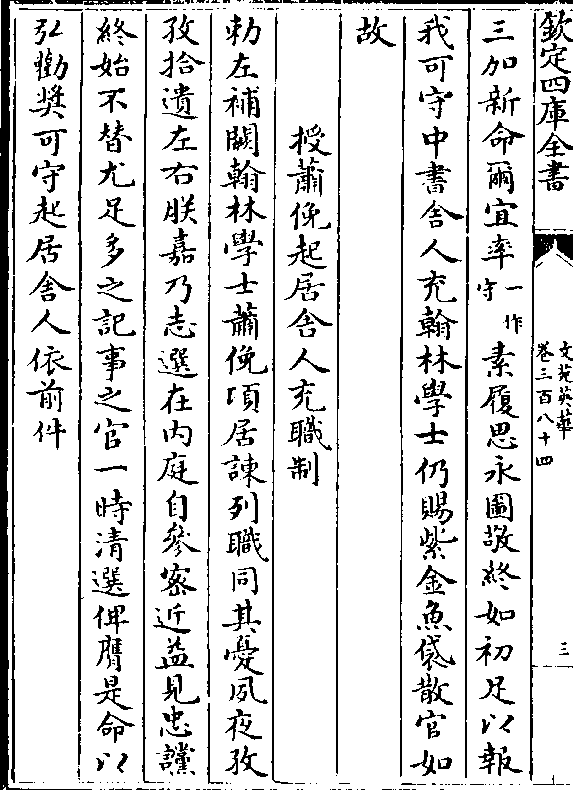 欽定四庫全書
文苑英華
卷三百八十四
三
三加新命爾宜率一作守素履思永圖敬終如初足以報
我可守中書舍人充翰林學士仍賜紫金魚袋散官如
故
授蕭俛起居舍人充職制
勅左補闕翰林學士蕭俛頃居諫列職同其憂夙夜孜
孜拾遺左右朕嘉乃志選在内庭自參密近益見忠讜
終始不替尤足多之記事之官一時清選俾膺是命以
弘勸奨可守起居舍人依前件